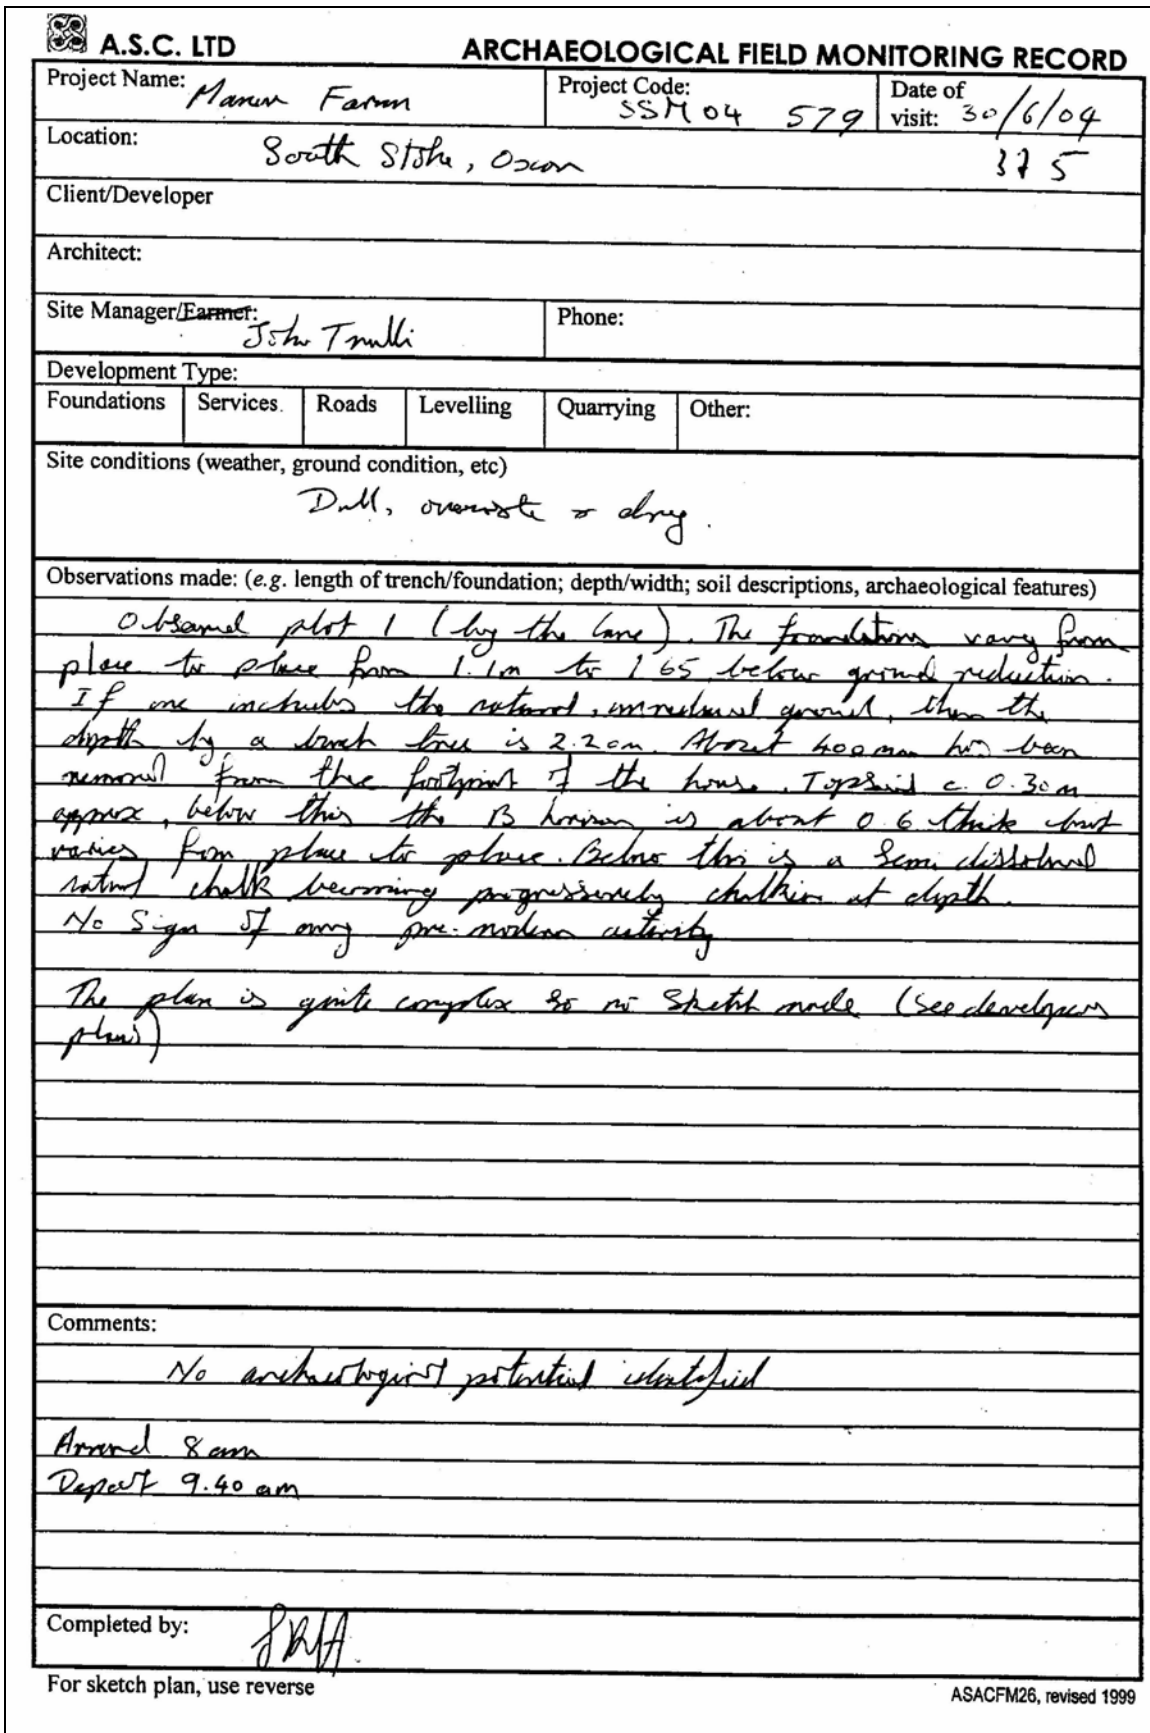 A.S.C. LTD
ARCHAEOLOGICAL FIELD MONITORING RECORD
Project Name: Manor Farm
Project Code: SSM04 579
Date of visit: 30/6/04
Location: South Stoke, Oxon
375
Client/Developer
Architect:
Site Manager/Farmer: John
Phone:
Development Type:
Foundations Services. Roads Levelling Quarrying Other:
Site conditions (weather, ground condition, etc)
Dull, & dry.
Observations made: (e.g. length of trench/foundation; depth/width; soil descriptions, archaeological features)
Observed plot 1 (by the lane). The foundations vary from
place to place from 1.1m to 1 65 below ground reduction.
If one includes the natural, unreduced ground, then the
depth by a tree is 2.20m. About 400mm has been
removed from the footprint of the house. Topsoil c. 0.30m
approx, below this the B horizon is about 0 6 thick but
varies from place to place. Below this is a Semi dissolved
natural chalk becoming progressively chalkier at depth.
No Sign of any pre-modern activity
The plan is quite complex so no Sketch made (See developers
plans)
Comments:
No archaeological potential identified
Arrived 8am
Depart 9.40 am
Completed by:
For sketch plan, use reverse
ASACFM26, revised 1999